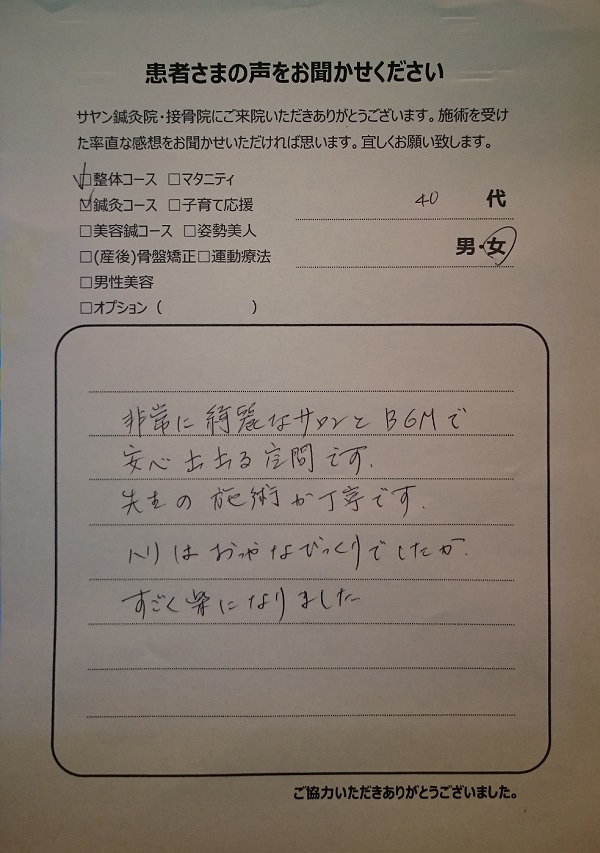 患者さまの声をお聞かせください
サヤン鍼灸院・接骨院にご来院いただきありがとうございます。施術を受け
た率直な感想をお聞かせいただければ思います。宜しくお願い致します。
□整体コース □マタニティ
☑鍼灸コース □子育て応援
□美容鍼コース □姿勢美人
□(産後)骨盤矯正□運動療法
□男性美容
□オプション (　　　　　)
40 代
男・女
非常に綺麗なサロンとBGMで
安心出来る空間です.
先生の施術が丁寧です.
ハリは びっくりでしたが.
すごく楽になりました
ご協力いただきありがとうございました。